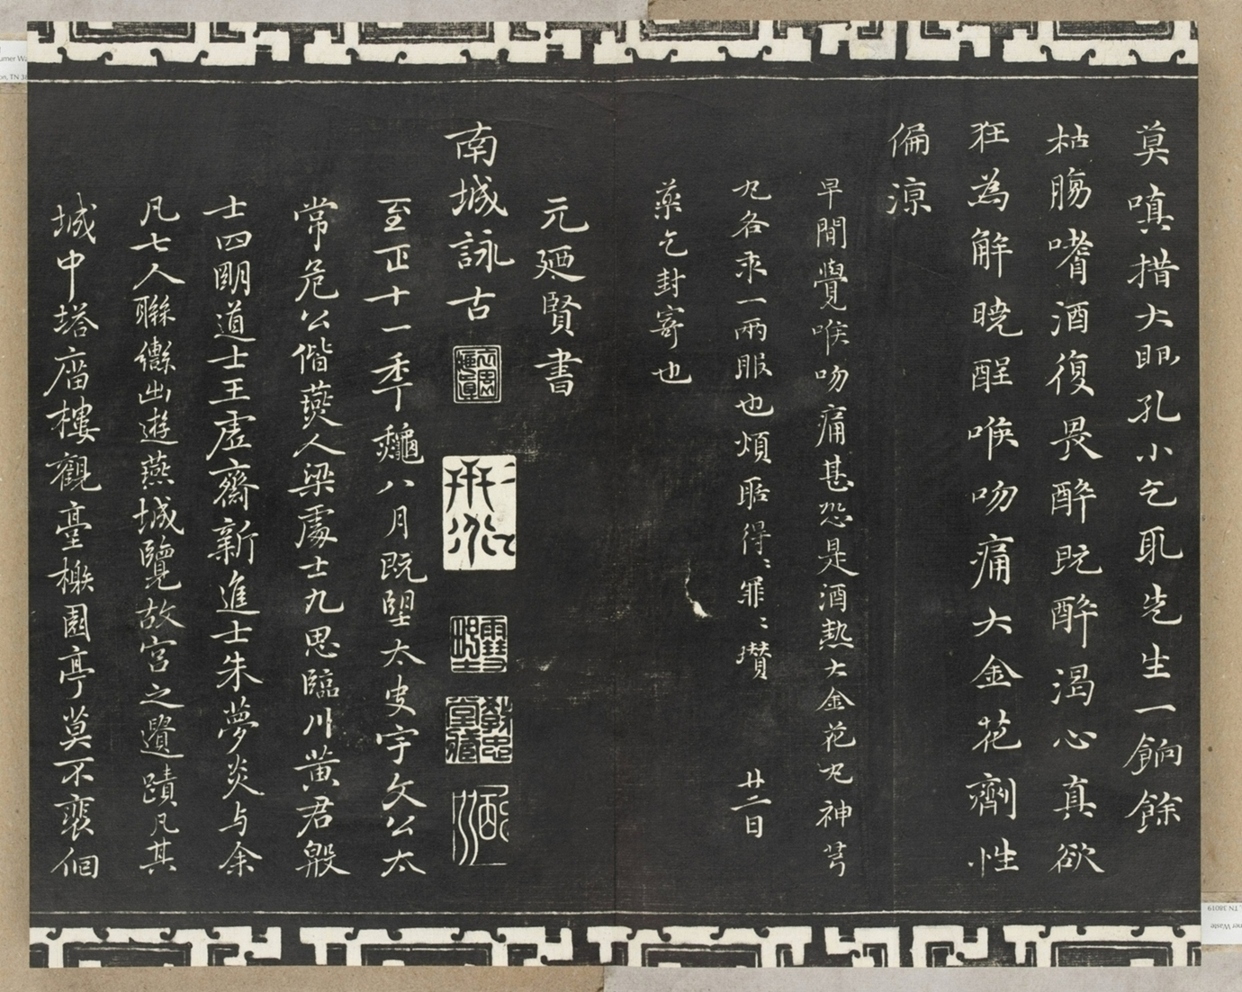 莫嗔措大眼孔小乞取先生一餉餘
枯腸嗜酒復畏醉既醉渴心真欲
狂為解曉酲喉吻痛大金花劑性
偏涼
早間覺喉吻痛甚恐是酒熱大金花丸神芎
丸各求一兩服也煩聒得〻罪〻瓚 廿二日
藥乞封寄也
元廼賢書
南城詠古
至正十一年秋八月既望太史宇文公太
常危公偕燕人梁處士九思臨川黃君殷
士四明道士王虛齋新進士朱夢炎与余
凡七人聯轡出遊燕城覽故宮之遺蹟凡其
城中塔廟樓觀臺榭園亭莫不裵佪